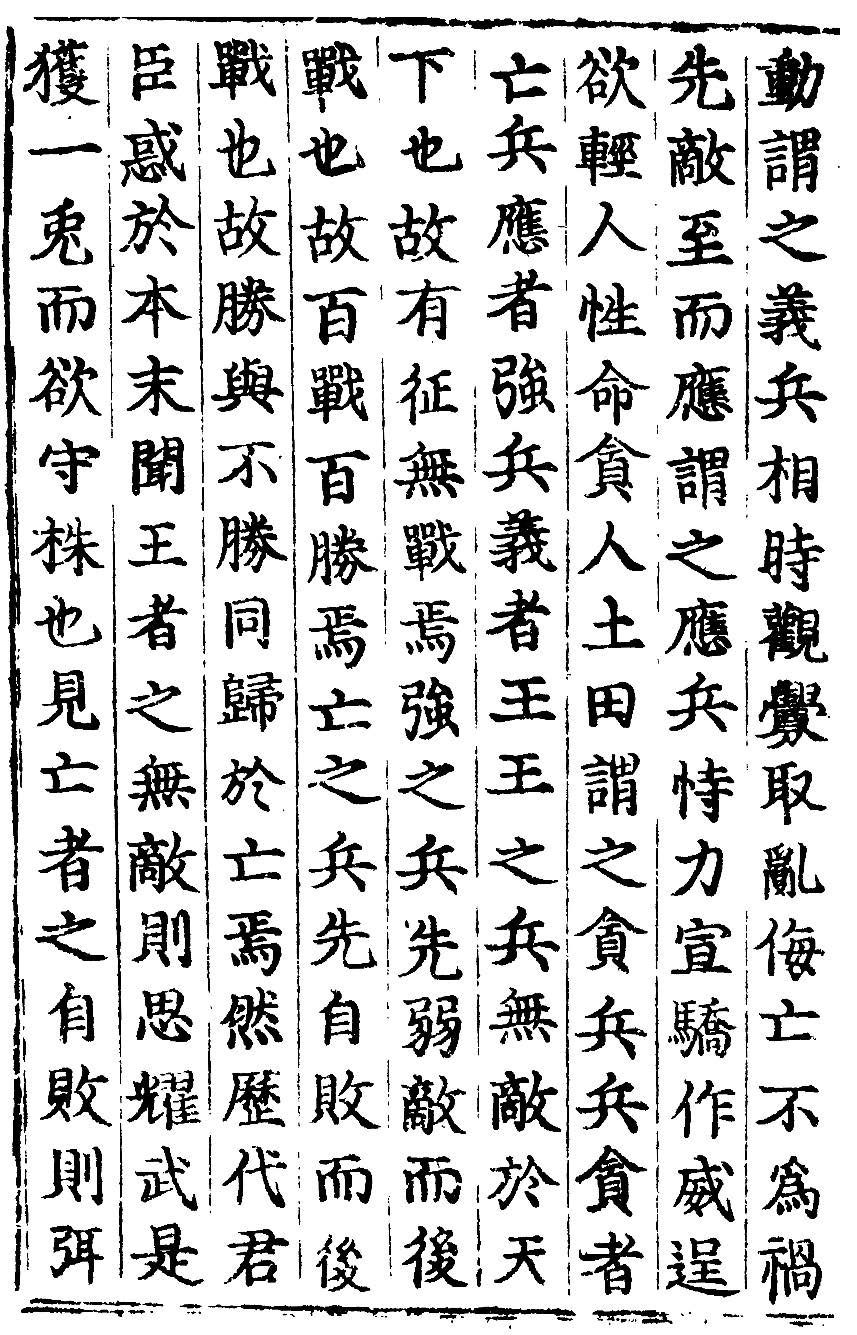 動謂之義兵相時觀釁取亂侮亡不爲禍
先敵至而應謂之應兵恃力宣驕作威逞
欲輕人性命貪人土田謂之貪兵兵貪者
亡兵應者強兵義者王王之兵無敵於天
下也故有征無戰焉強之兵先弱敵而後
戰也故百戰百勝焉亡之兵先自敗而後
戰也故勝與不勝同歸於亡焉然歷代君
臣惑於本末聞王者之無敵則思耀武是
獲一兎而欲守株也見亡者之自敗則弭